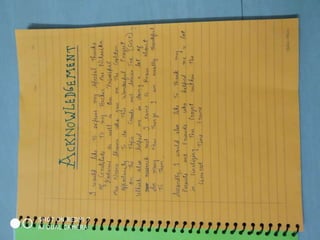 ACKNOWLEDGEMENT
I would like to express my Special Thanks
of Gratitude To my Teacher Mrs
as well as Our Principal
Ms who gave me the Golden
Opportunity To do this Wonderful Project
on the Topic Goods and Services Tax (GST).
Which also helped me in doing a lot of
research and I came to Know about
So many New Things I am really thankful
To Them.
Secondly I would also like To thank my
Parents and Friends who helped me a lot
in Finalizing The Project within the
limited Time Frame